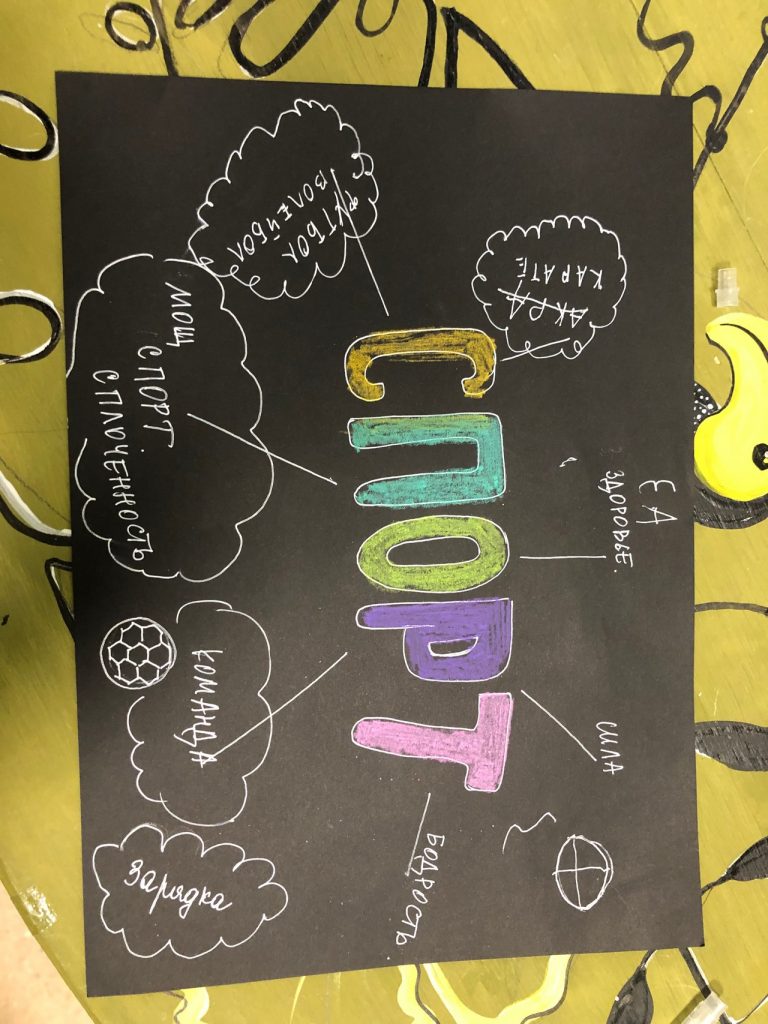 ЕА
ЗДОРОВЬЕ.
СИЛА
КАРАТЕ
СПОРТ
БОДРОСТЬ.
ФУТБОЛ
ВОЛЕЙБОЛ
МОЩ
СПОРТ.
СПЛОЧЕННОСТЬ
КОМАНДА
Зарядка